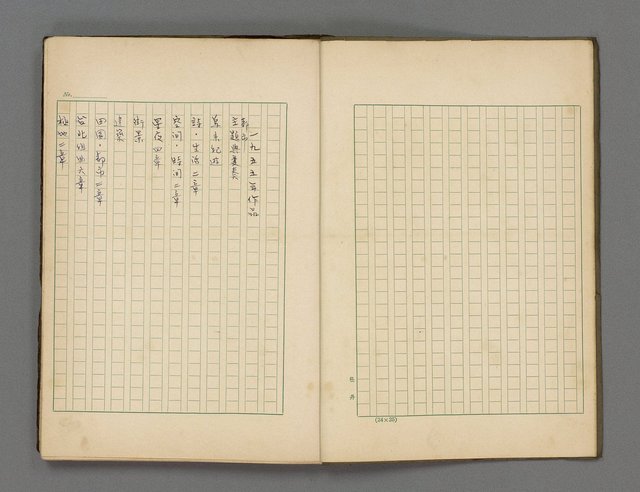 一九五五年作品
主題與變奏
草原紀遊
詩·生活二章
空間·時間二章
星夜四章
街景
建築
田園·都市二章
台北組曲六章
極地二章
No.
(24×25)